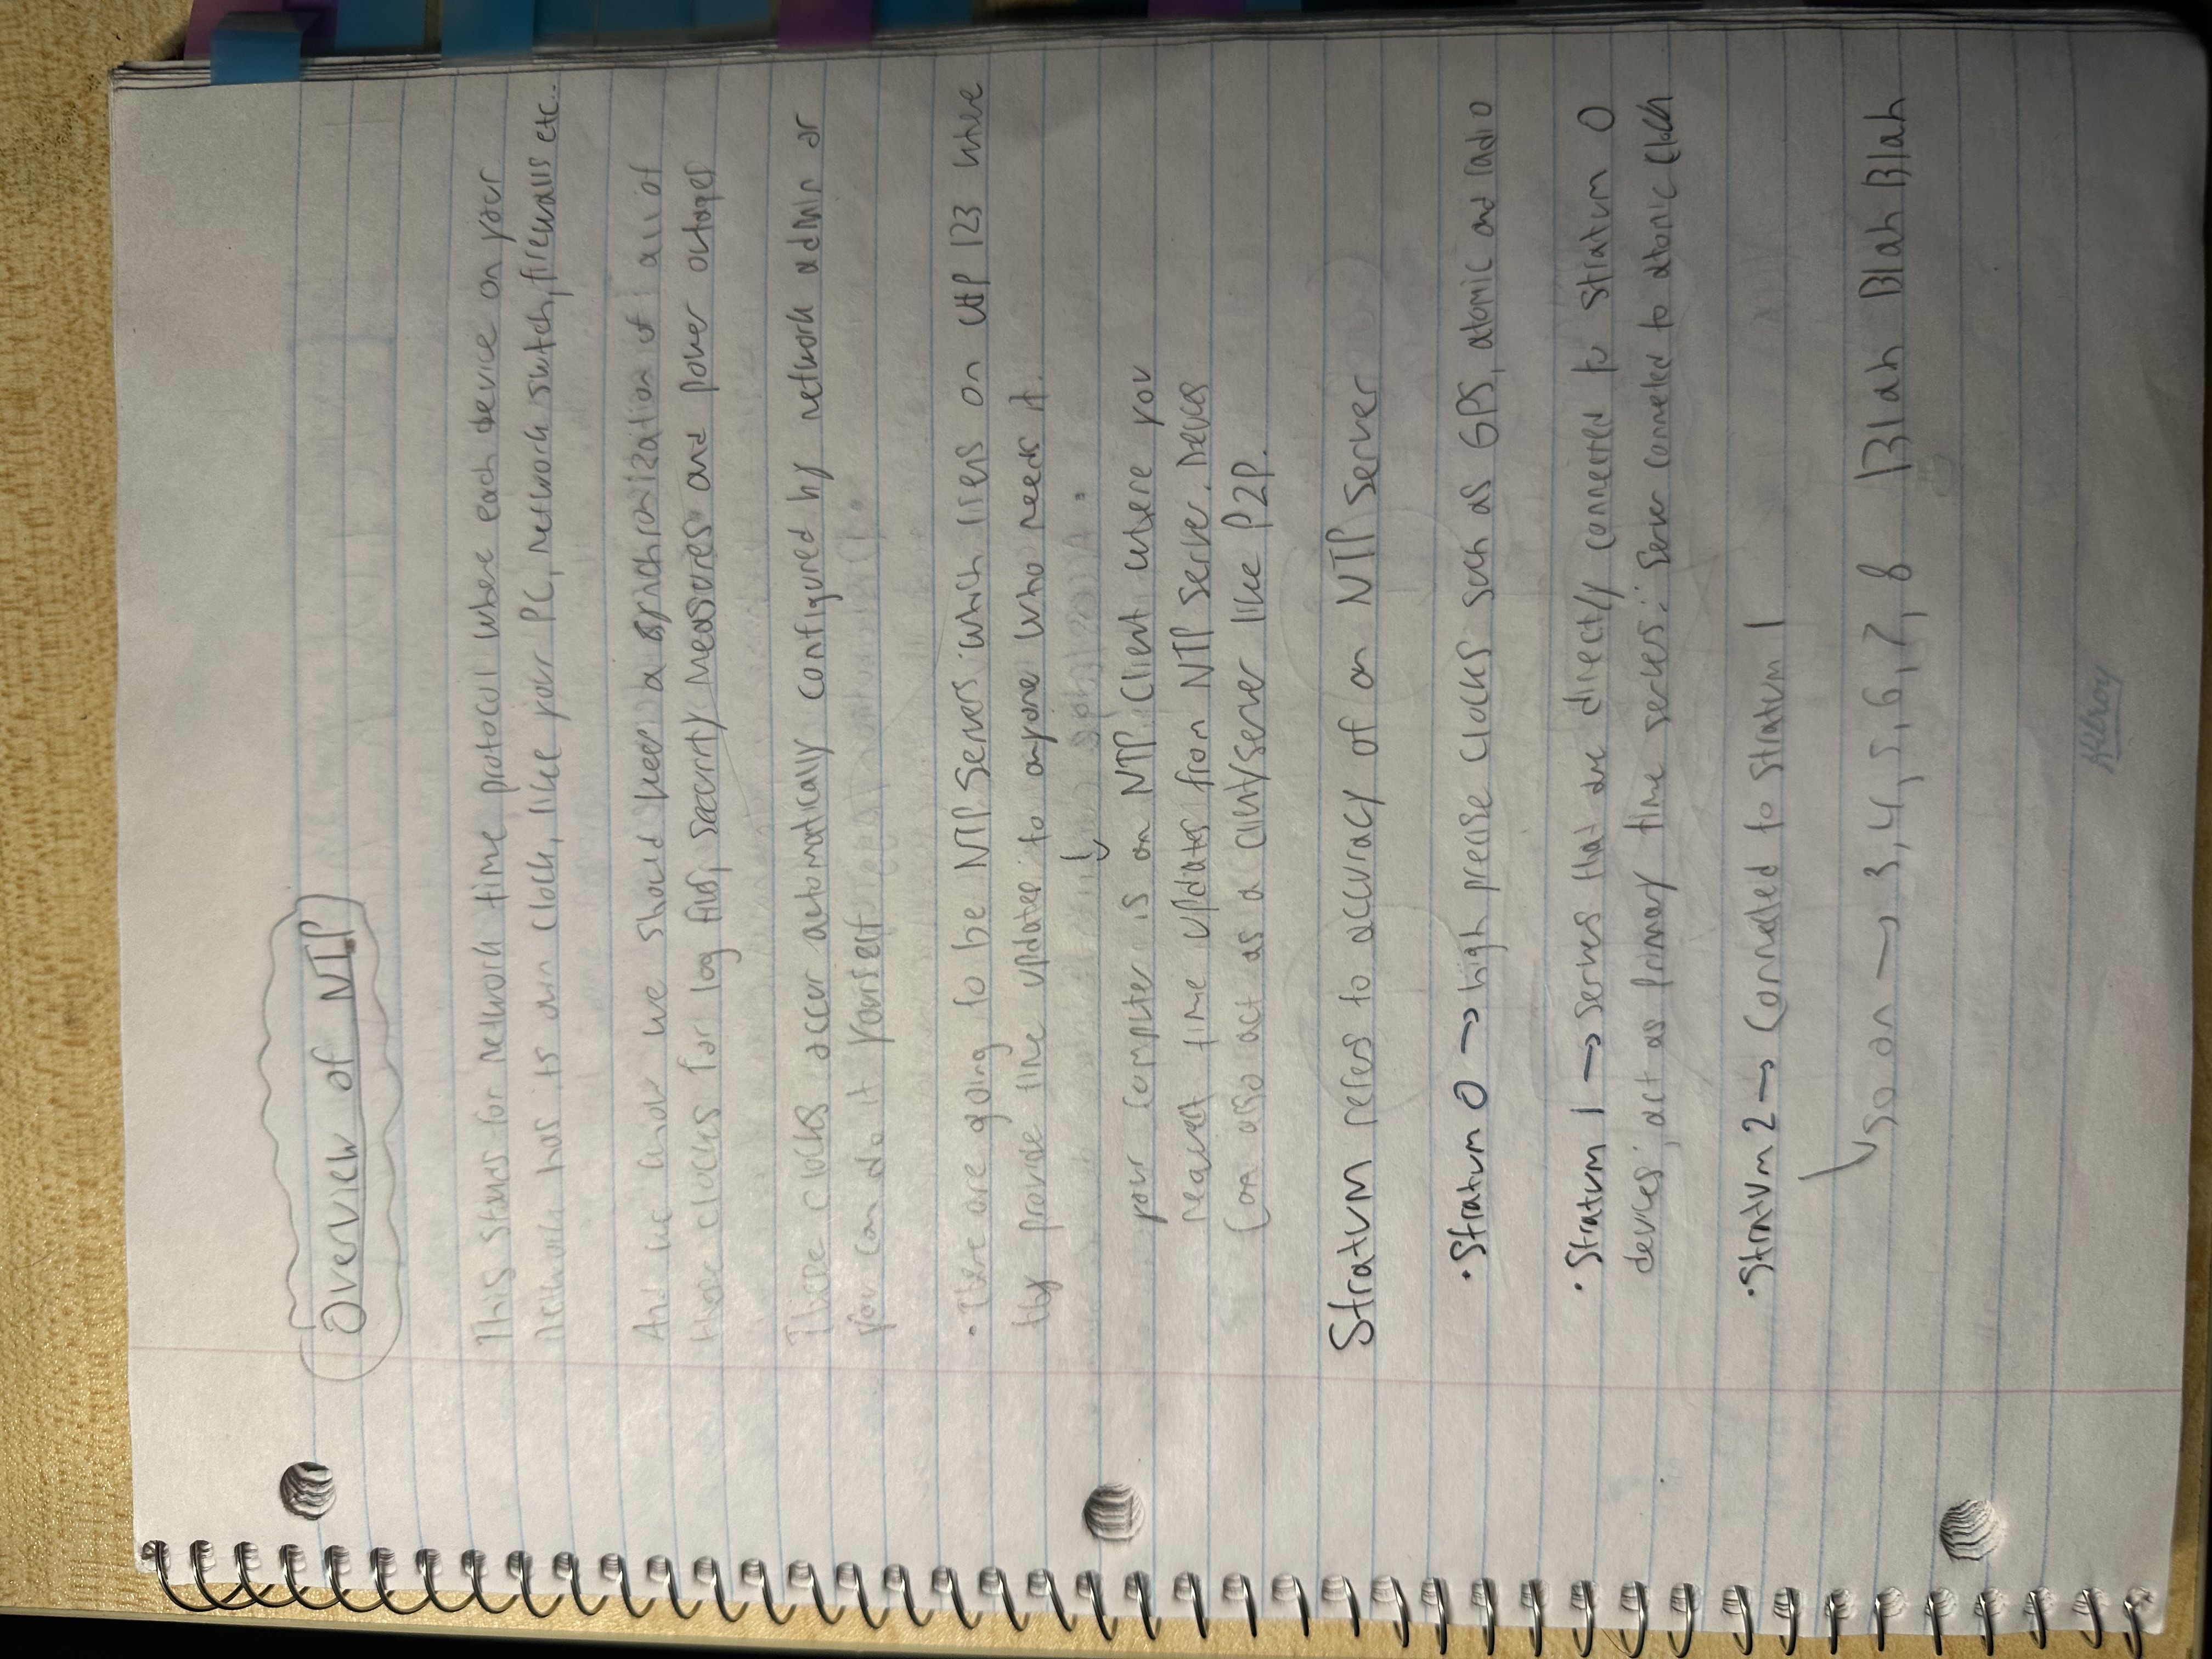 Overview of NTP
This stands for network time protocol where each device on your
network has its own clock, like your PC, network switch, firewalls etc..
And we know we should keep a synchronization of all of
these clocks for log files, security measures and power outages
These clocks occur automatically configured by network admin or
you can do it yourself
• There are going to be NTP servers which listens on UDP 123 where
they provide time updates to anyone who needs it.
↓
your computer is an NTP client where you
request time updates from NTP server. Devices
Can also act as a client/server like P2P.
Stratum refers to accuracy of an NTP server
• Stratum 0 → high precise clocks such as GPS, atomic and radio
• Stratum 1 → servers that are directly connected to stratum 0
devices; act as primary time servers: Server connected to atomic clock
• Stratum 2 → Connected to stratum 1
↳ so on → 3, 4, 5, 6, 7, 8 Blah Blah Blah
Hilroy